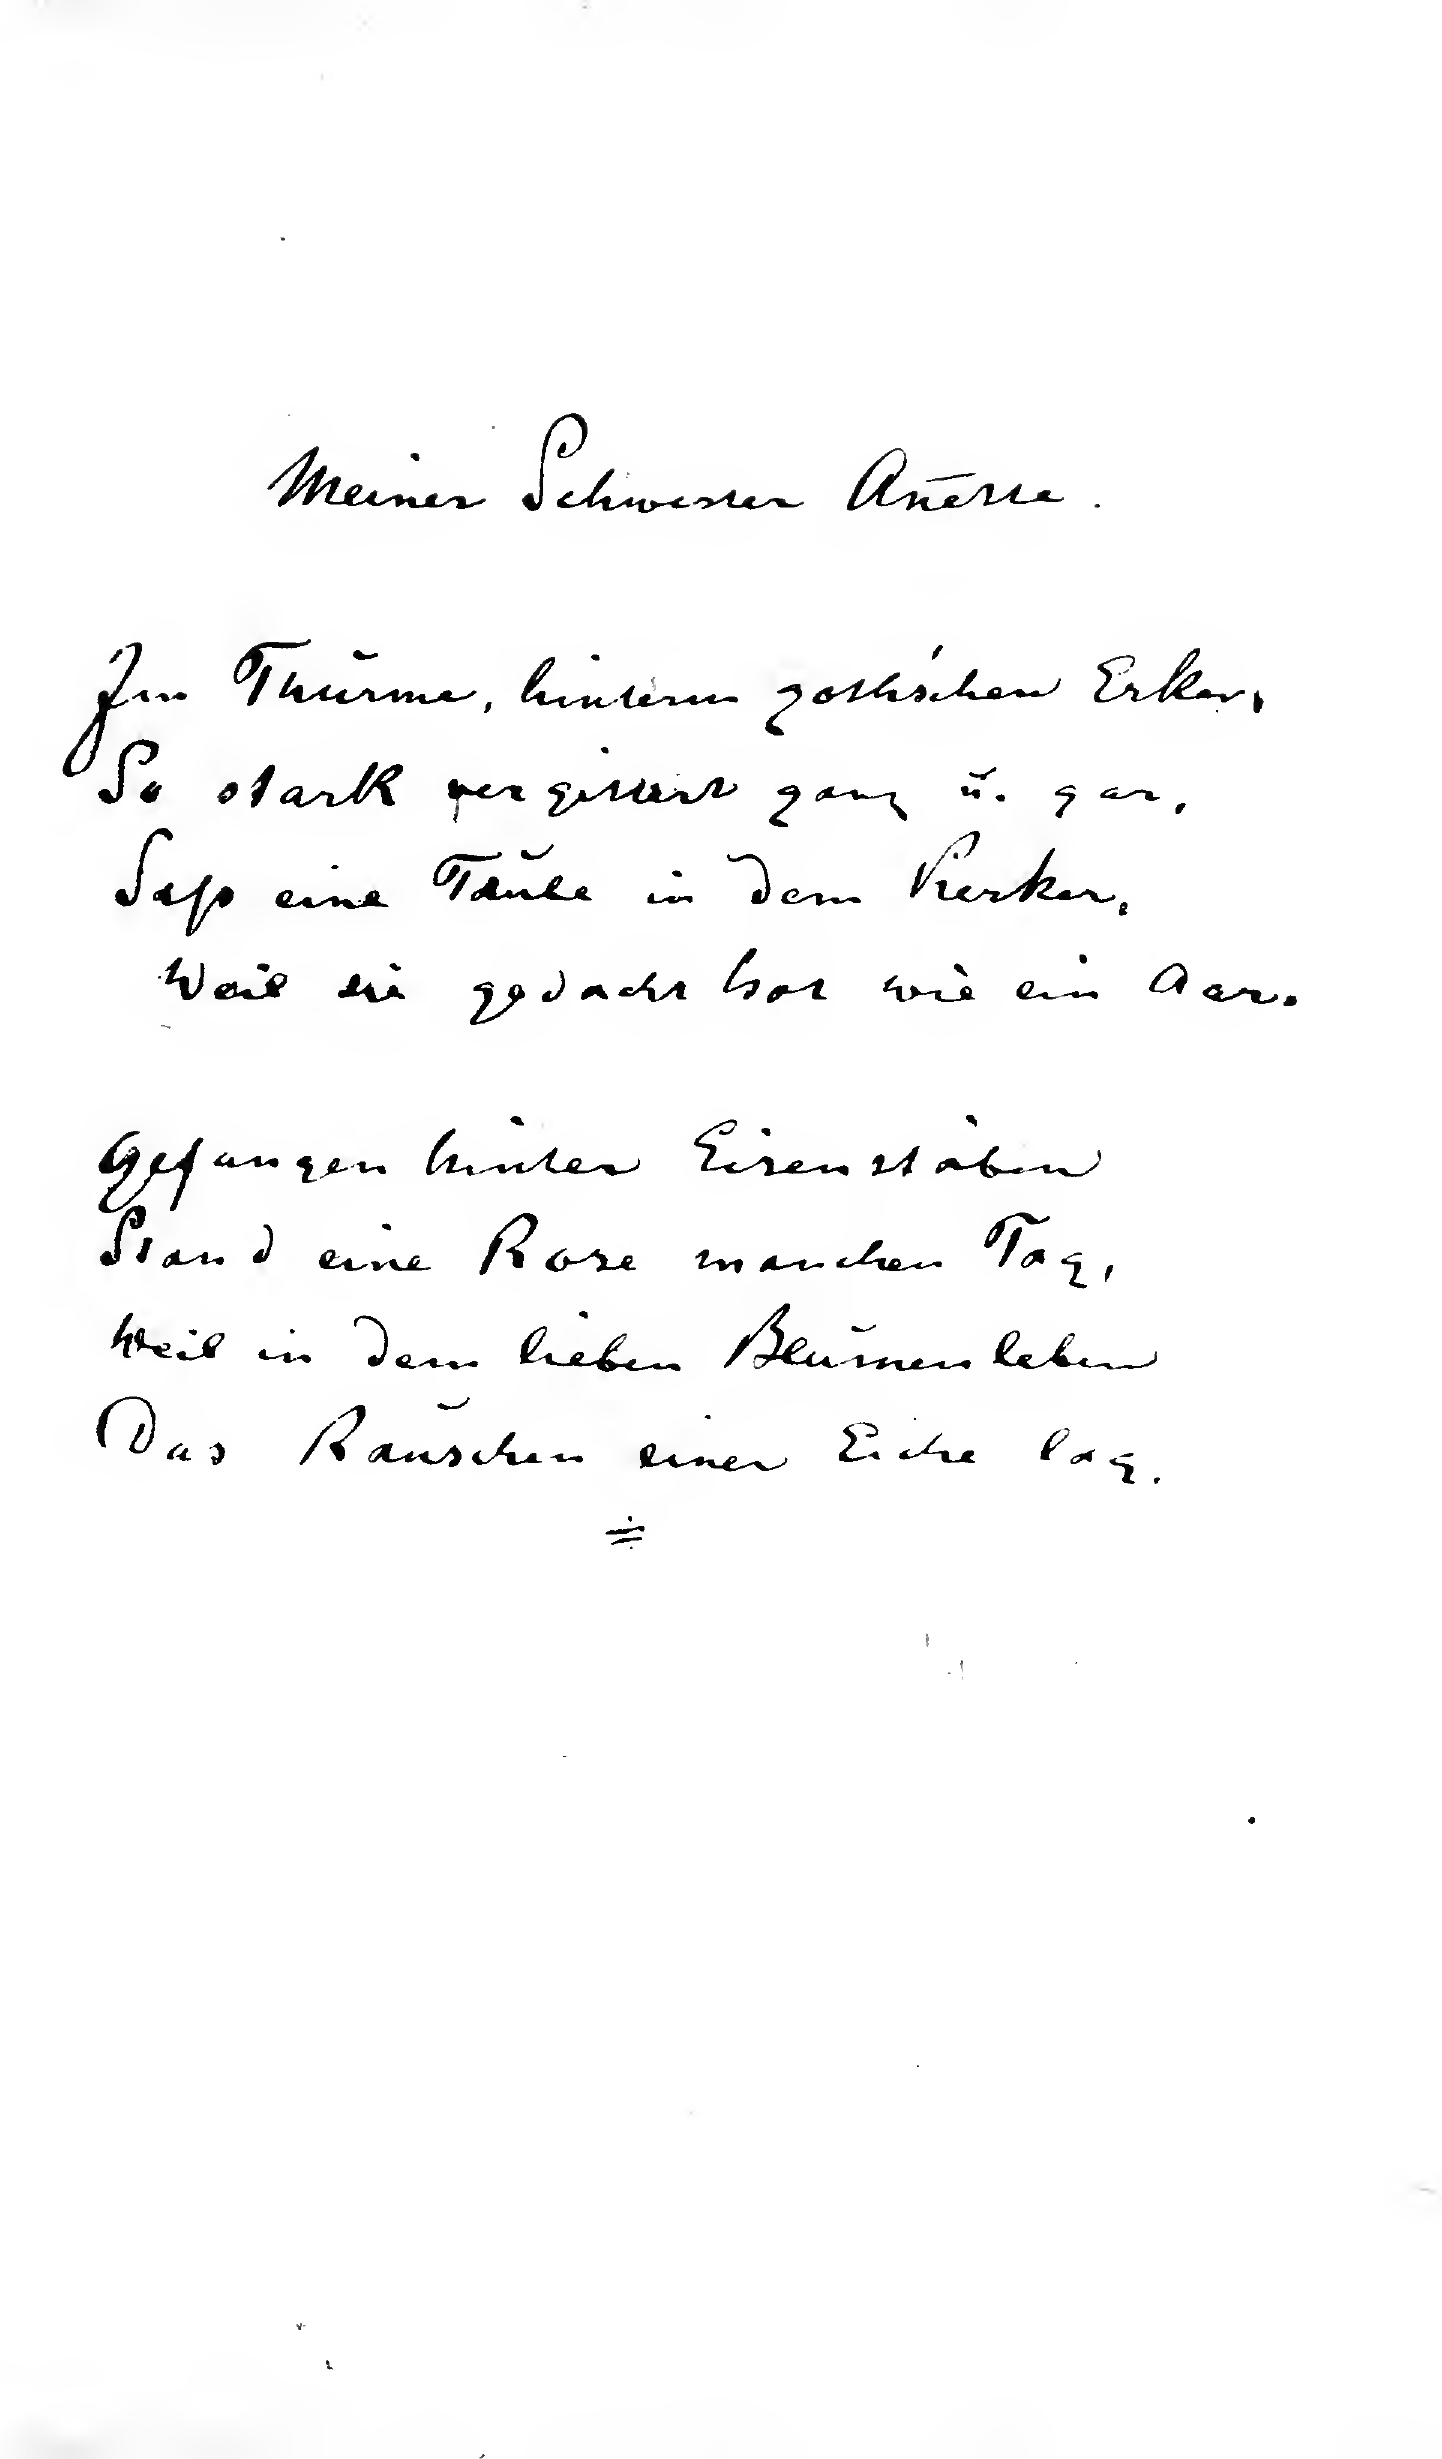 Meiner Schwester An̄ette.
Im Thurme, hinterm goth'schen Erker,
So stark vergittert ganz u. gar,
Saß eine Taube in dem Kerker,
Weil sie gedacht hat wie ein Aar.
Gefangen hinter Eisenstäben
Stand eine Rose manchen Tag,
Weil in dem lieben Blumenleben
Das Rauschen einer Eiche lag.